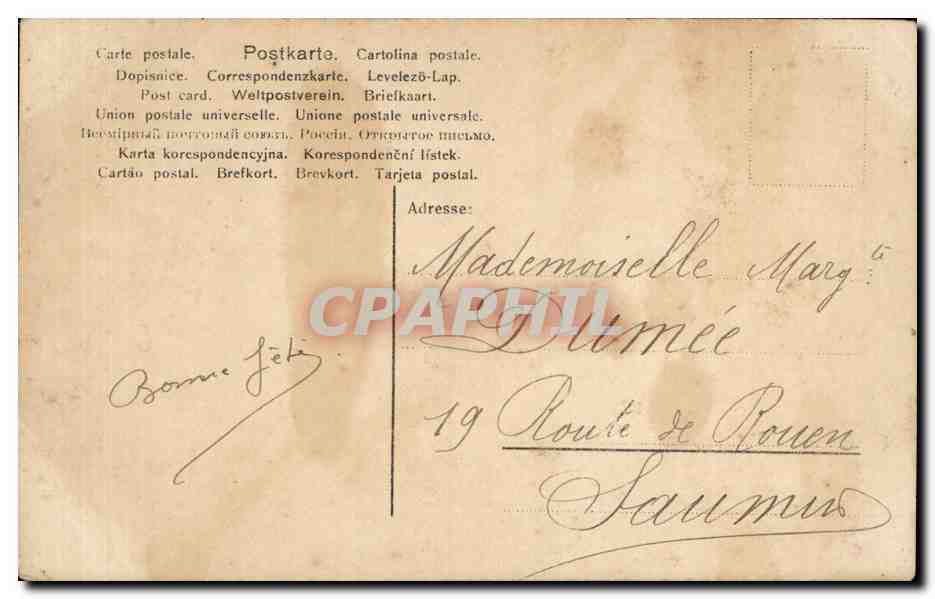 Carte postale. Postkarte. Cartolina postale.
Dopisnice. Correspondenzkarte. Levelező-Lap.
Post card. Weltpostverein. Briefkaart.
Union postale universelle. Unione postale universale.
Всемірный почтовый союзъ. Россія. Открытое письмо.
Karta korespondencyjna. Korespondenční lístek.
Cartão postal. Brefkort. Brevkort. Tarjeta postal.
Adresse:
Mademoiselle Margte
Dumée
19 Route de Rouen
Saumur
Bonne fête
CPAPHIL